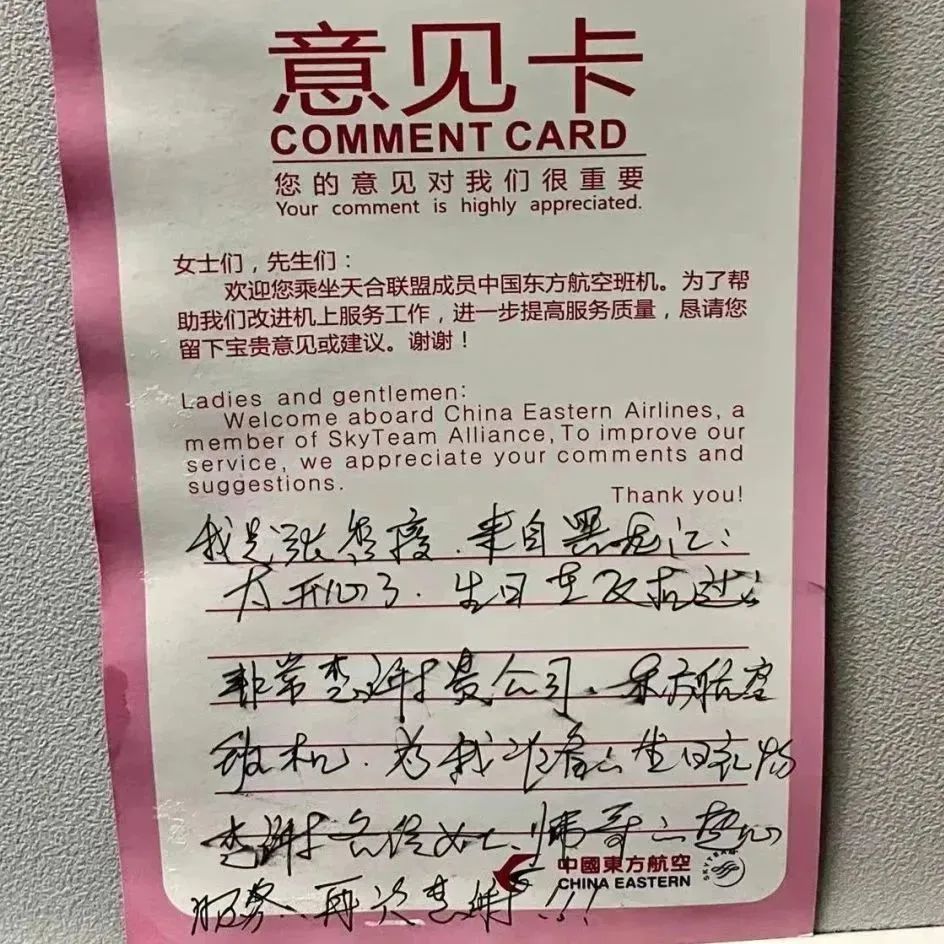 意见卡
COMMENT CARD
您的意见对我们很重要
Your comment is highly appreciated.
女士们，先生们：
欢迎您乘坐天合联盟成员中国东方航空班机。为了帮
助我们改进机上服务工作，进一步提高服务质量，恳请您
留下宝贵意见或建议。谢谢！
Ladies and gentlemen:
Welcome aboard China Eastern Airlines, a
member of SkyTeam Alliance,To improve our
service, we appreciate your comments and
suggestions.
Thank you!
我是张 来自黑龙江：
太开心了．生日在飞机过
非常感谢贵公司、东方航空
班机．为我准备 生日礼物
感谢各位女士、帅哥 热心
服务、再次感谢！！！
中國東方航空
CHINA EASTERN
SKYTEAM